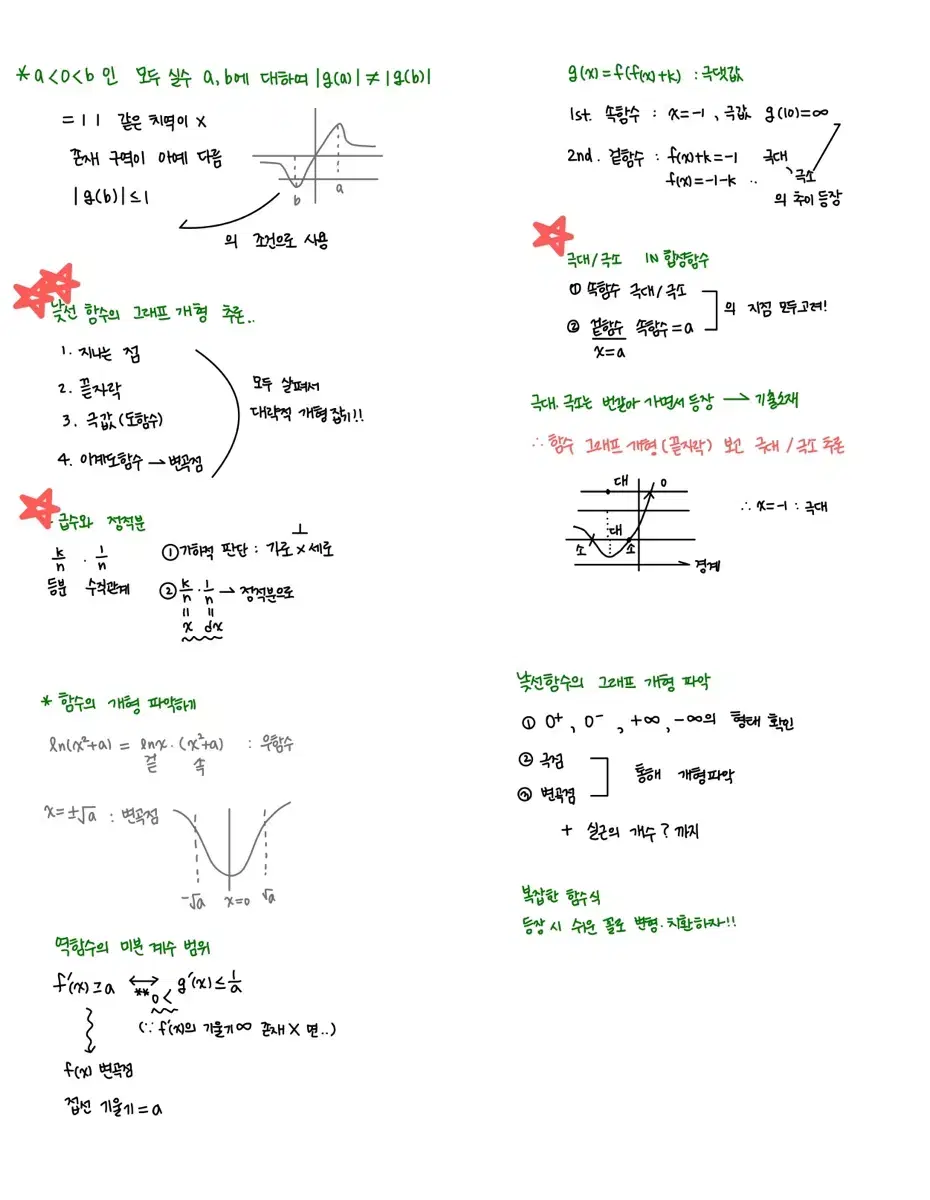 * a<0<b 인 모두 실수 a, b에 대하여 |g(a)| ≠ |g(b)|
= | | 같은 치역이 x
존재 구역이 아예 다름
|g(b)| ≤ 1
b
a
의 조건으로 사용
낯선 함수의 그래프 개형 추론..
1. 지나는 점
2. 끝자락
3. 극값 (도함수)
4. 이계도함수 → 변곡점
모두 살펴서
대략적 개형 잡기!!
· 급수와 정적분
k/n · 1/n
등분 수직관계
① 기하적 판단 : 가로 × 세로
⊥
② k/n · 1/n → 정적분으로
= =
x dx
* 함수의 개형 파악하기
ln(x²+a) = lnx · (x²+a) : 우함수
겉 속
x = ±√a : 변곡점
-√a x=0 √a
역함수의 미분 계수 범위
f'(x) ≥ a ↔ ** 0 < g'(x) ≤ 1/a
(∵ f'(x)의 기울기 ∞ 존재 X 면..)
f(x) 변곡점
접선 기울기 = a
g(x) = f(f(x)+k) : 극댓값
1st. 속함수 : x=-1, 극값 g(10)=∞
2nd. 겉함수 : f(x)+k=-1 극대
f(x)=-1-k .. 극소
의 추이 등장
극대/극소 IN 합성함수
① 쏙함수 극대/극소
② 겉함수 속함수=a
x=a
의 지점 모두고려!
극대. 극소는 번갈아 가면서 등장 → 기출소재
∴ 함수 그래프 개형 (끝자락) 보고 극대 / 극소 추론
대 0
대
소 소
경계
∴ x=-1 : 극대
낯선함수의 그래프 개형 파악
① 0⁺, 0⁻, +∞, -∞의 형태 확인
② 극점
③ 변곡점
통해 개형파악
+ 실근의 개수? 까지
복잡한 함수식
등장 시 쉬운 꼴로 변형·치환하자!!